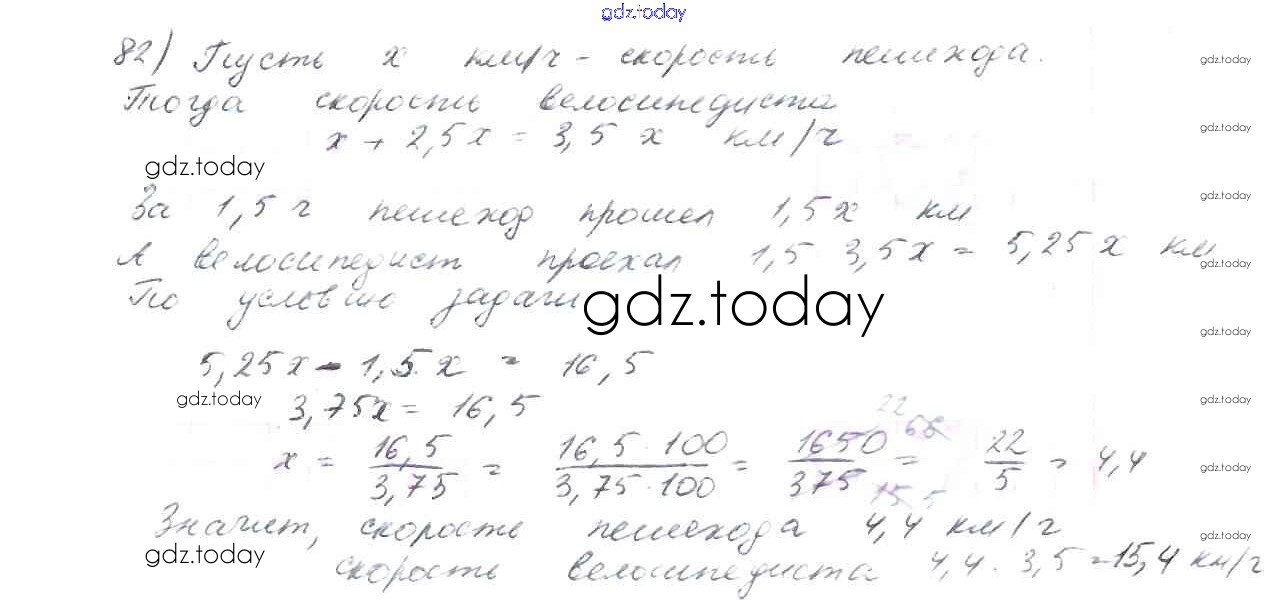 gdz.today
82) Пусть x км/ч - скорость пешехода.
gdz.today
Тогда скорость велосипедиста
gdz.today
x + 2,5x = 3,5 x км/ч
gdz.today
gdz.today
За 1,5 ч пешеход прошел 1,5x км
А велосипедист проехал 1,5 3,5x = 5,25x км
gdz.today
По условию задачи
gdz.today
gdz.today
5,25x - 1,5 x = 16,5
gdz.today
3,75x = 16,5
gdz.today
x = 16,5/3,75 = 16,5·100/3,75·100 = 1650/375 = 22/5 = 4,4
22 66
15 5
gdz.today
Значит, скорость пешехода 4,4 км/ч
gdz.today
gdz.today
скорость велосипедиста 4,4 · 3,5 = 15,4 км/ч